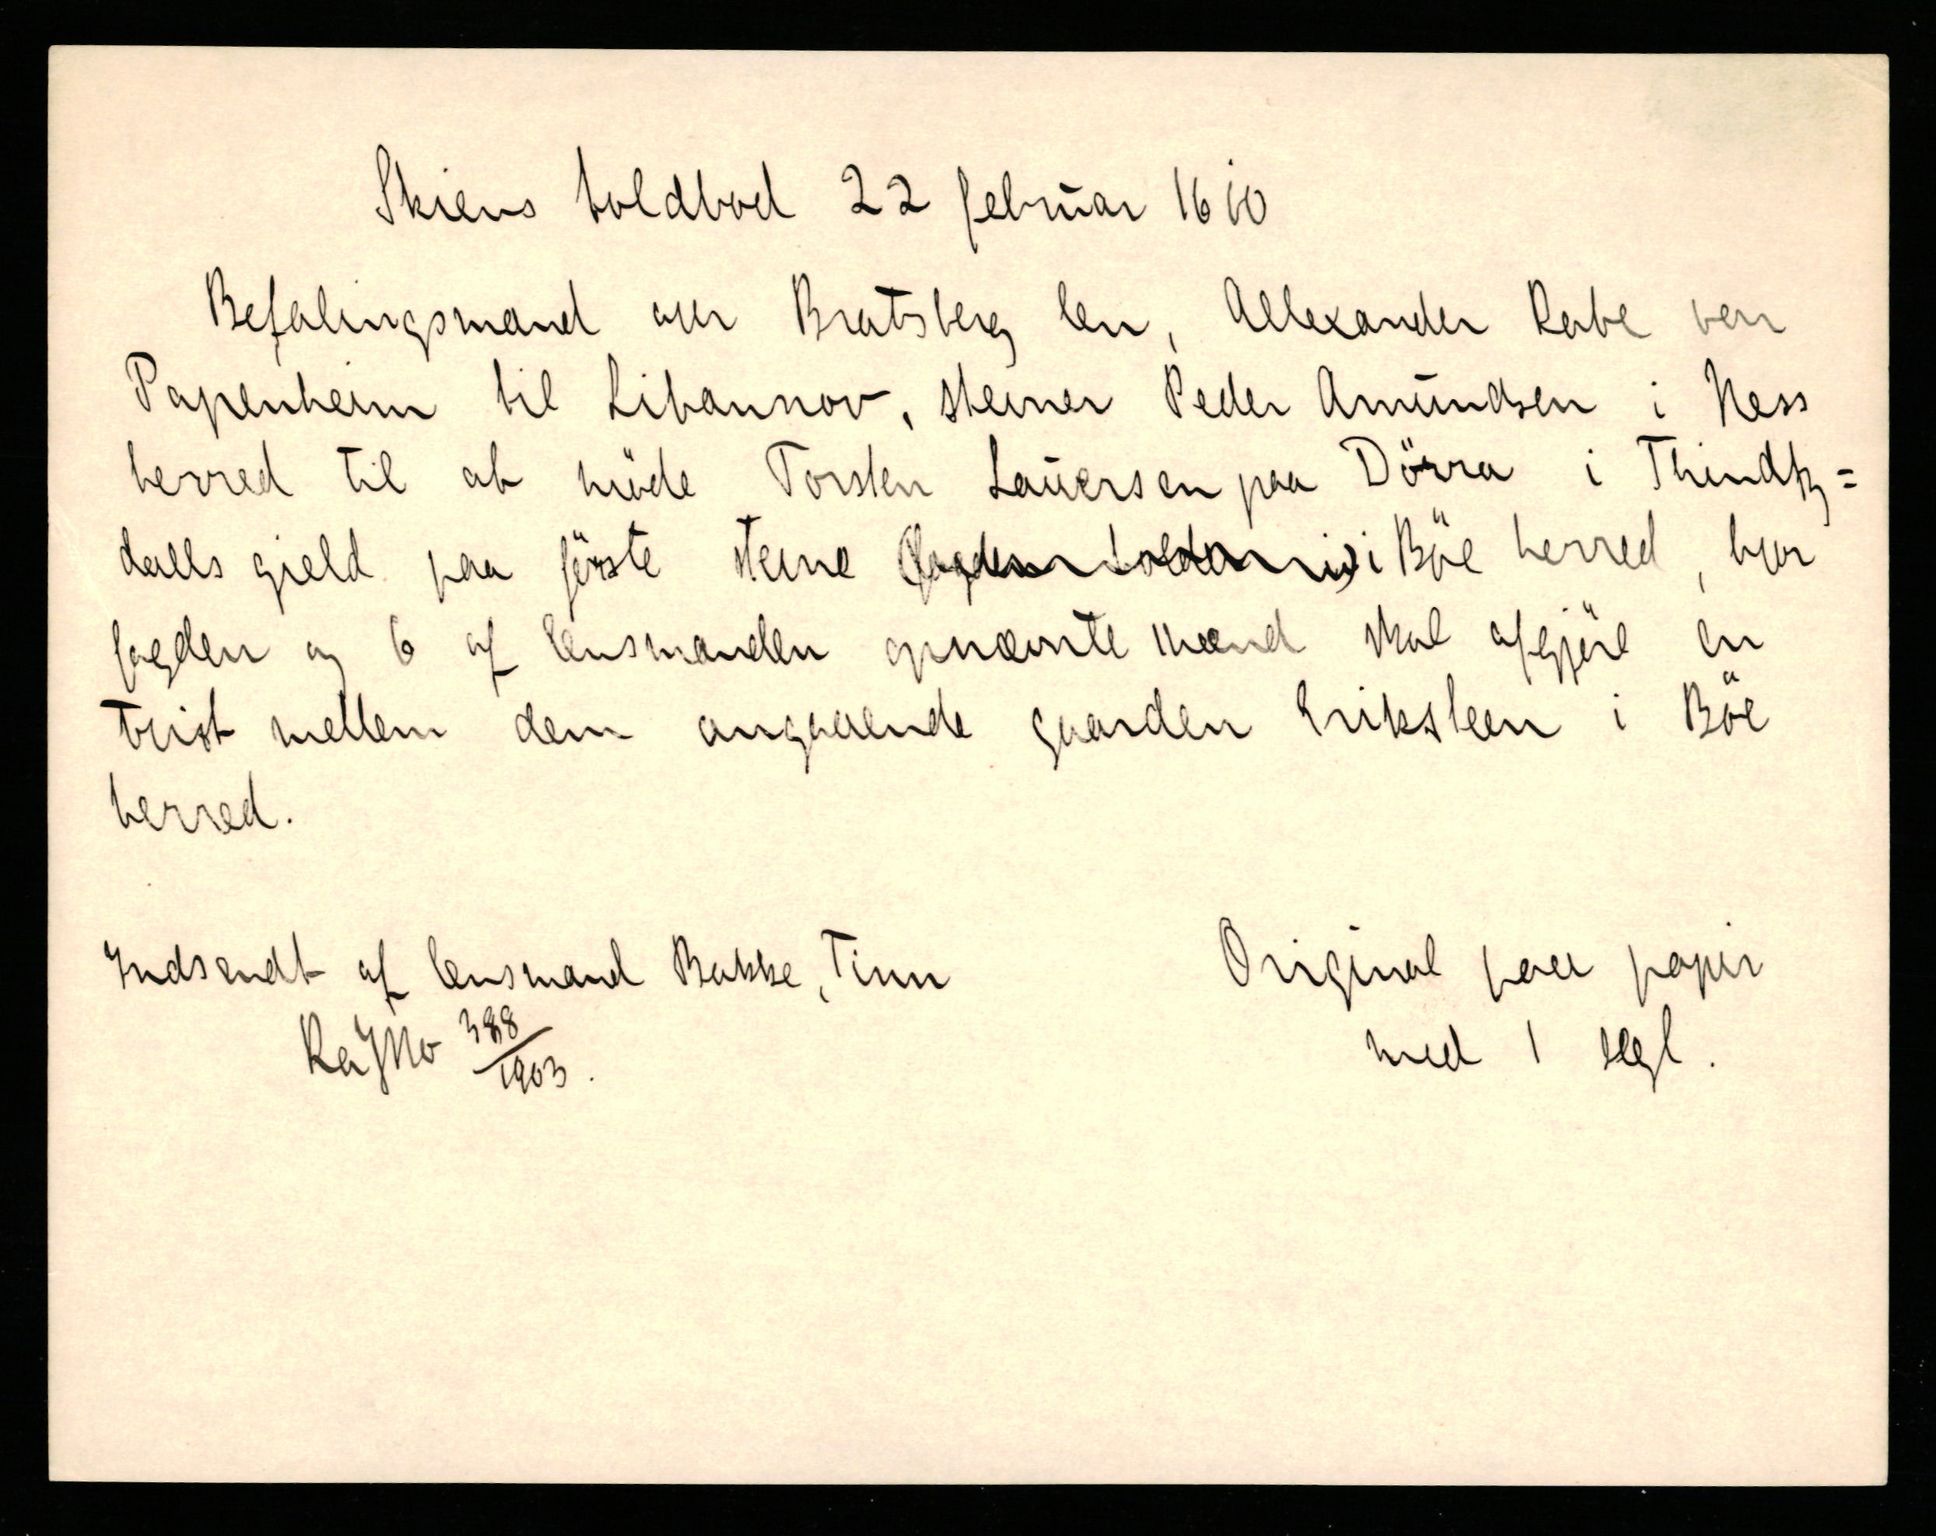 Skiens toldbod 22 februar 1610
Befalingsmand over Bratsberg len, Allexander Rabe von
Papenheim til Libannov, stevner Peder Amundsen i Ness
herred til at möde Torsten Lauersen paa Dörra i Thindtz=
dalls gield paa förste stevne i Böe herred, hvor
fogden og 6 af lensmanden opnævnte mænd skal afgjöre en
tvist mellem dem angaaende gaarden Eriksteen i Böe
herred.
Indsendt af lensmand Bakke, Tinn
RaJNo 388/1903.
Original paa papir
med 1 segl.